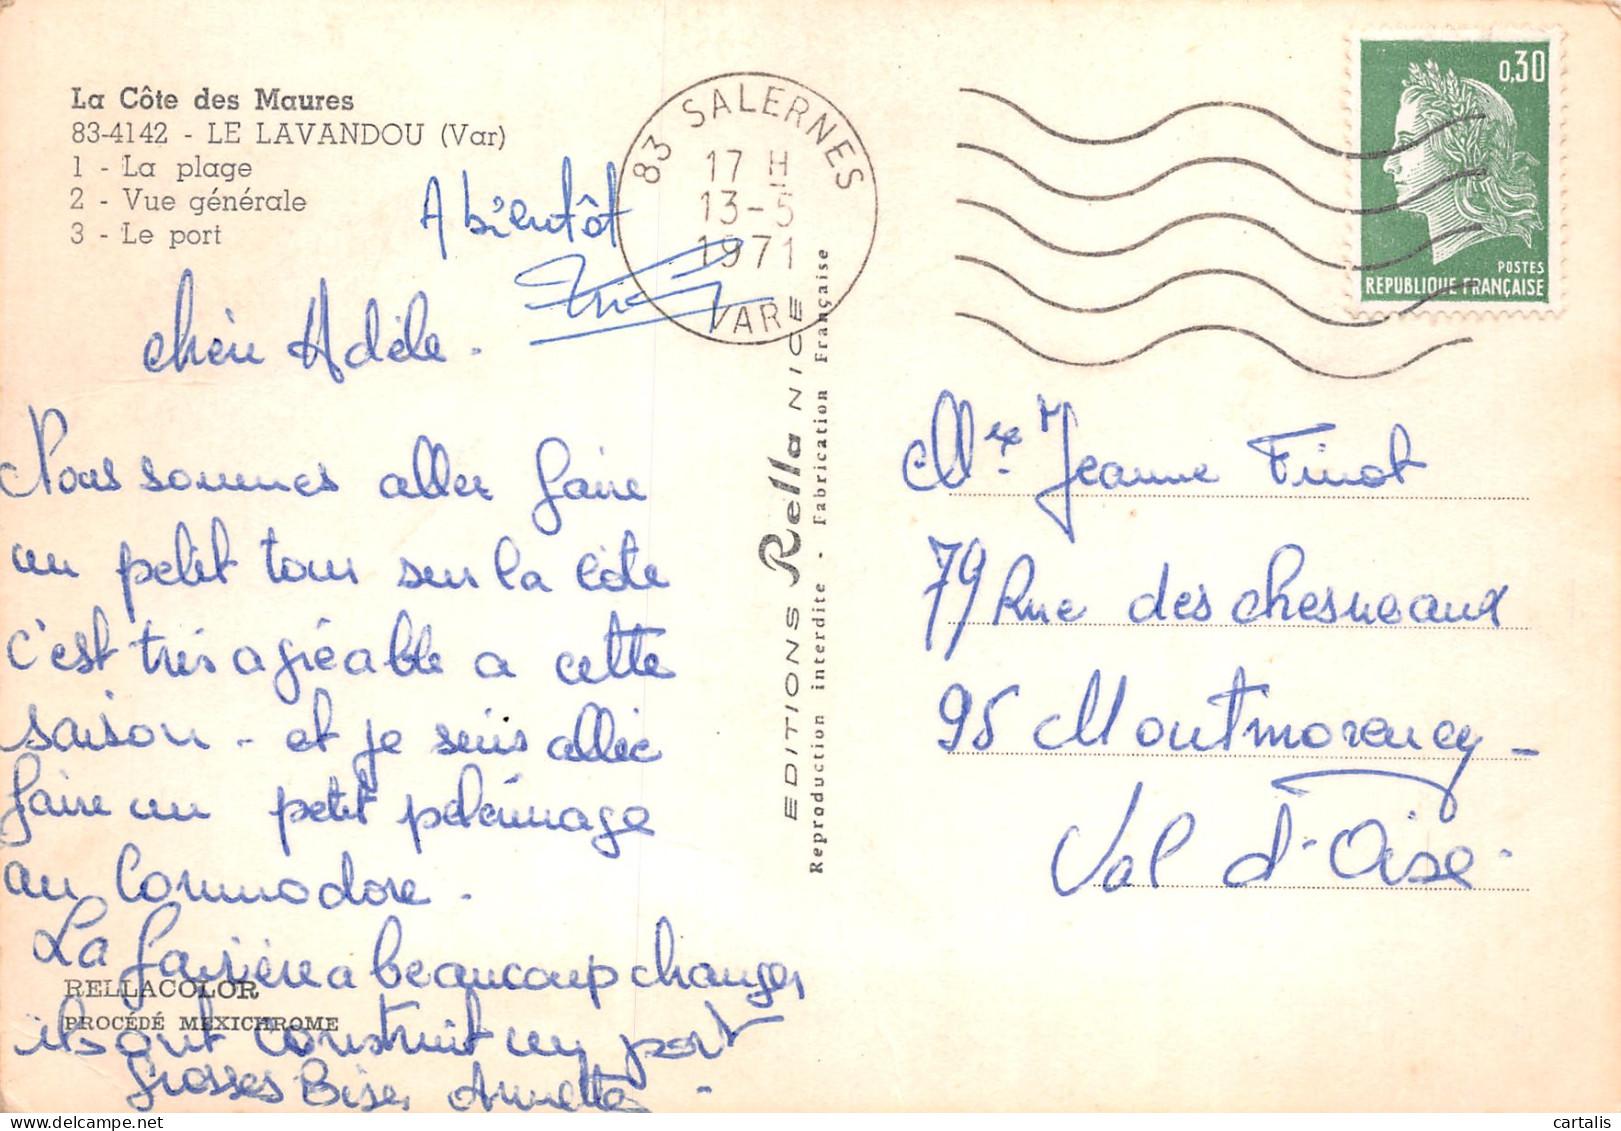 La Côte des Maures
83-4142 - LE LAVANDOU (Var)
1 - La plage
2 - Vue générale
3 - Le port
A bientôt
chère Adèle.
Nous sommes aller faire
un petit tour sur la côte
c'est très agréable a cette
saison - et je suis allée
faire un petit pelérinage
au Commodore.
La favière a beaucoup changer
ils ont construit un port
Grosses Bises Annette
RELLACOLOR
PROCÉDÉ MEXICHROME
83 SALERNES
17 H
13-5
1971
VAR
EDITIONS Rella NICE
Reproduction interdite - Fabrication Française
0,30
POSTES
REPUBLIQUE FRANÇAISE
Jeanne Finot
79 Rue des chesneaux
95 Montmorency -
Val d'Oise.
cartalis